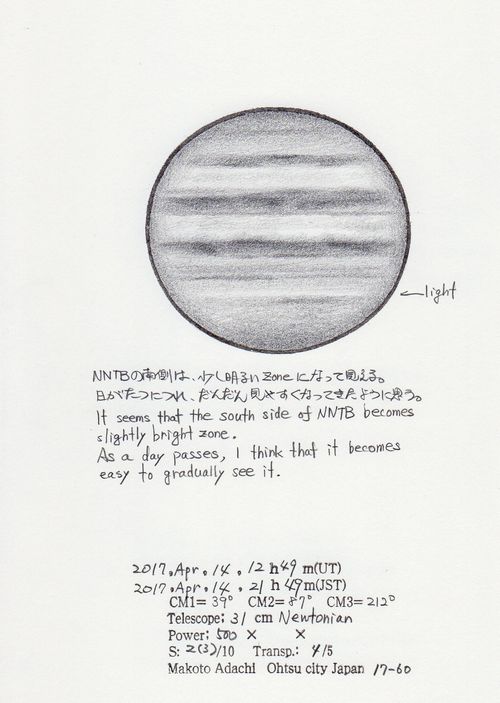 light
NNTBの南側は、少し明るいzoneになって見える。
日がたつにつれ、だんだん見やすくなってきたように思う。
It seems that the south side of NNTB becomes
slightly bright zone.
As a day passes, I think that it becomes
easy to gradually see it.
2017.Apr.14.12h49m(UT)
2017.Apr.14.21h49m(JST)
CM1=39° CM2=87° CM3=212°
Telescope: 31 cm Newtonian
Power: 500 × ×
S: 2(3)/10 Transp.: 4/5
Makoto Adachi Ohtsu city Japan 17-60